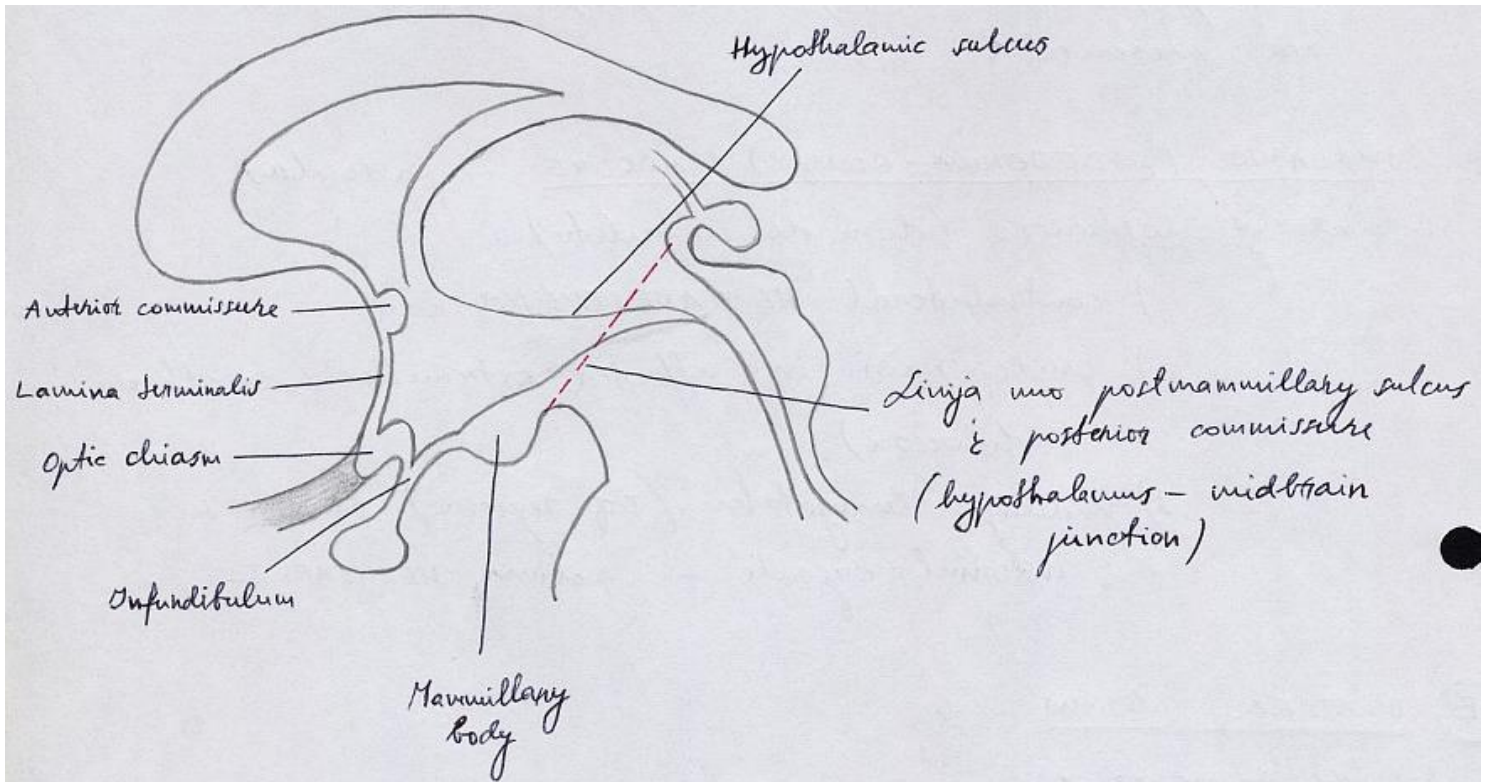 Hypothalamic sulcus
Anterior commissure
Lamina terminalis
Optic chiasm
Infundibulum
Mammillary
body
Linija nuo postmammillary sulcus
į posterior commissure
(hypothalamus – midbrain
junction)